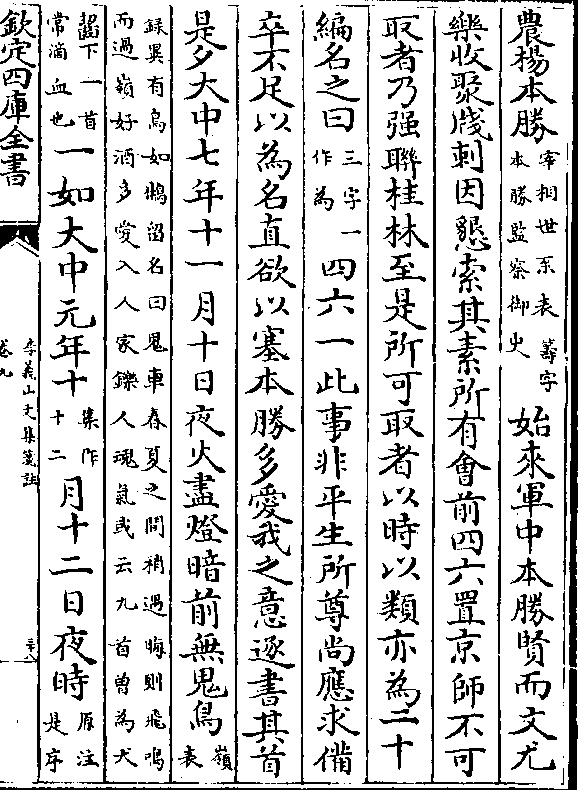 農楊本勝宰相世系表籌字本勝監察御史始來軍中本勝賢而文尤
樂收聚牋刺因懇索其素所有會前四六置京師不可
取者乃强聯桂林至是所可取者以時以類亦為二十
編名之曰三字一作為四六一此事非平生所尊尚應求備
卒不足以為名直欲以塞本勝多愛我之意遂書其首
是夕大中七年十一月十日夜火盡燈暗前無鬼鳥嶺表
録異有鳥如鵂留名曰鬼車春夏之間稍遇晦則飛鳴
而過嶺好酒多愛入人家鑠人魂氣或云九首曽為犬
齧下一首常滴血也一如大中元年十集作十二月十二日夜時原注是序
欽定四庫全書
李義山文集箋註
卷九